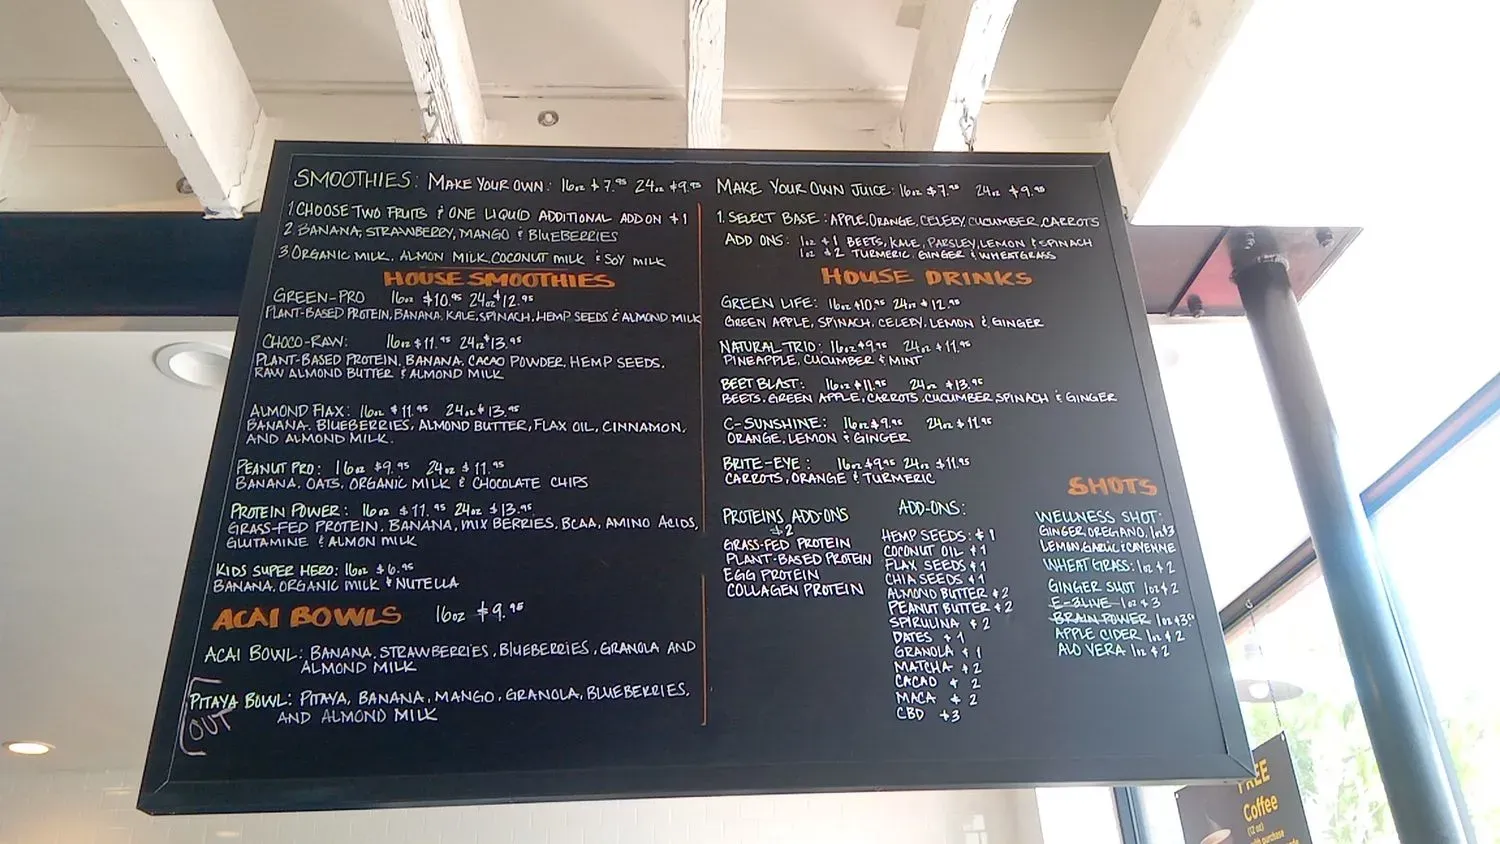 SMOOTHIES: MAKE YOUR OWN: 16oz $7.95 24oz $9.95
1. CHOOSE TWO FRUITS & ONE LIQUID ADDITIONAL ADD ON $1
2. BANANA, STRAWBERRY, MANGO & BLUEBERRIES
3. ORGANIC MILK, ALMON MILK, COCONUT MILK & SOY MILK
HOUSE SMOOTHIES
GREEN-PRO 16oz $10.95 24oz $12.95
PLANT-BASED PROTEIN, BANANA, KALE, SPINACH, HEMP SEEDS & ALMOND MILK
CHOCO-RAW: 16oz $11.95 24oz $13.95
PLANT-BASED PROTEIN, BANANA, CACAO POWDER, HEMP SEEDS,
RAW ALMOND BUTTER & ALMOND MILK
ALMOND FLAX: 16oz $11.95 24oz $13.95
BANANA, BLUEBERRIES, ALMOND BUTTER, FLAX OIL, CINNAMON,
AND ALMOND MILK.
PEANUT PRO: 16oz $9.95 24oz $11.95
BANANA, OATS, ORGANIC MILK & CHOCOLATE CHIPS
PROTEIN POWER: 16oz $11.95 24oz $13.95
GRASS-FED PROTEIN, BANANA, MIX BERRIES, BCAA, AMINO ACIDS,
GLUTAMINE & ALMON MILK
KIDS SUPER HERO: 16oz $6.95
BANANA, ORGANIC MILK & NUTELLA
ACAI BOWLS 16oz $9.95
ACAI BOWL: BANANA, STRAWBERRIES, BLUEBERRIES, GRANOLA AND
ALMOND MILK
PITAYA BOWL: PITAYA, BANANA, MANGO, GRANOLA, BLUEBERRIES,
AND ALMOND MILK
OUT
MAKE YOUR OWN JUICE: 16oz $7.95 24oz $9.95
1. SELECT BASE: APPLE, ORANGE, CELERY, CUCUMBER, CARROTS
ADD ONS: 1oz $1 BEETS, KALE, PARSLEY, LEMON & SPINACH
1oz $2 TURMERIC, GINGER & WHEATGRASS
HOUSE DRINKS
GREEN LIFE: 16oz $10.95 24oz $12.95
GREEN APPLE, SPINACH, CELERY, LEMON & GINGER
NATURAL TRIO: 16oz $9.95 24oz $11.95
PINEAPPLE, CUCUMBER & MINT
BEET BLAST: 16oz $11.95 24oz $13.95
BEETS, GREEN APPLE, CARROTS, CUCUMBER, SPINACH & GINGER
C-SUNSHINE: 16oz $9.95 24oz $11.95
ORANGE, LEMON & GINGER
BRITE-EYE: 16oz $9.95 24oz $11.95
CARROTS, ORANGE & TURMERIC
PROTEINS ADD-ONS
$2
GRASS-FED PROTEIN
PLANT-BASED PROTEIN
EGG PROTEIN
COLLAGEN PROTEIN
ADD-ONS:
HEMP SEEDS: $1
COCONUT OIL $1
FLAX SEEDS $1
CHIA SEEDS $1
ALMOND BUTTER $2
PEANUT BUTTER $2
SPIRULINA $2
DATES $1
GRANOLA $1
MATCHA $2
CACAO $2
MACA $2
CBD $3
SHOTS
WELLNESS SHOT:
GINGER, OREGANO, 1oz $3
LEMON, GARLIC & CAYENNE
WHEAT GRASS: 1oz $2
GINGER SHOT 1oz $2
E-3LIVE 1oz $3
BRAIN POWER 1oz $3.50
APPLE CIDER 1oz $2
ALO VERA 1oz $2
FREE
Coffee
(12 oz)
with purchase